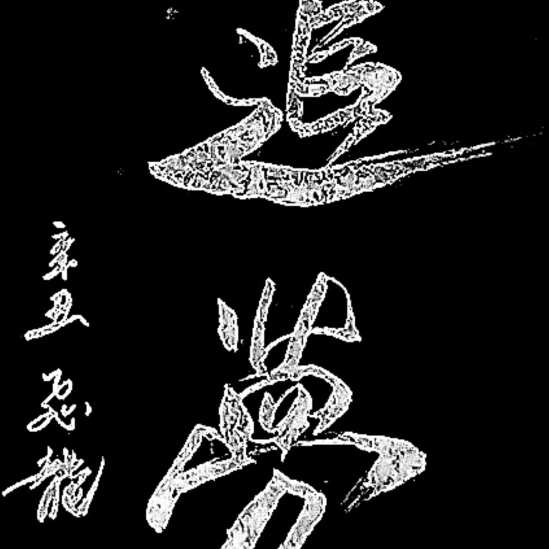 追夢
辛丑 龍